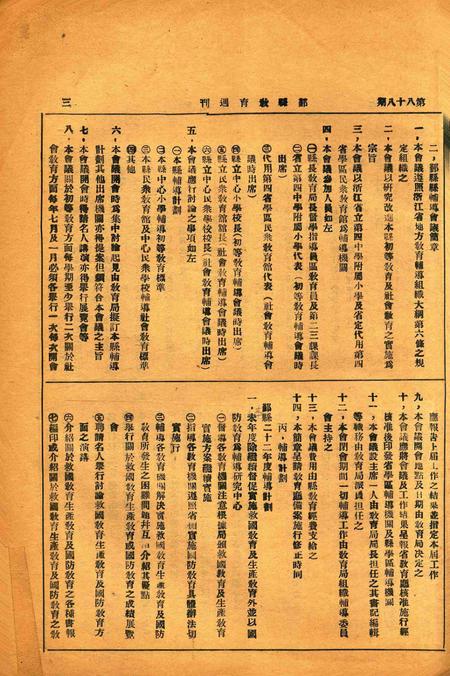 第八十八期
鄞縣教育週刊
三
二，鄞縣縣輔導會議簡章
一，本會議遵照浙江省地方教育輔導組織大綱第六條之規
定組織之
二，本會議以研究改進本縣初等教育及社會教育之實施爲
宗旨
三，本會議以浙江省立第四中學附屬小學及省定代用第四
省學區民衆教育館爲輔導機關
四，本會議參加人員如左
㊀縣長教育局長督學指導員區教育員及第二三課課長
㊁省立第四中學附屬小學代表（初等教育輔導會議時
出席）
㊂代用第四省學區民衆教育館代表（社會教育輔導會
議時出席）
㊃縣立中心小學校長（初等教育輔導會議時出席）
㊄縣立民衆教育館館長（社會教育輔導會議時出席）
㊅縣立中心民衆學校校長（社會教育輔導會議時出席）
五，本會議應行討論之事項如左
㊀本縣輔導計劃
㊁本縣中心小學輔導初等教育標準
㊂本縣民衆教育館及中心民衆學校輔導社會教育標準
㊃其他
六，本會議開會時爲集中討論起見由教育局擬訂本縣輔導
計劃其他出席機關亦得提案但須符合本會議之主旨
七，本會議開會時得請名人講演亦得舉行展覽會等
八，本會議關於初等教育方面每學期至少舉行二次關於社
會教育方面每年七月及一月必須各舉行一次每次開會
應報告上屆工作之結果並指定本屆工作
九，本會議開會地點及日期由教育局決定之
十，本會議應將會議及工作結果呈報省教育廳核准施行經
核准後印發省學區輔導機關及縣學區輔導機關
十一，本會議設主席一人由教育局局長担任之其書記編輯
等職務由教育局職員担任之
十二，本會閉會期間一切輔導工作由教育局組織輔導委員
會主持之
十三，本會會費用由縣教育經費支給之
十四，本簡章呈請教育廳備案施行修正時同
丙，輔導計劃
鄞縣二十二年度輔導計劃
一，本年度除繼續督促實施救國教育及生產教育外並以國
防教育爲輔導研究中心
㊀督導各教育機關注意根據局頒救國教育及生產教育
實施方案繼續實施
㊁指導各教育機關遵照省頒實施國防教育具體辦法切
實施行
㊂輔導各教育機關解決實施救國教育生產教育及國防
教育所發生之困難問題幷互相介紹其優點
㊃舉行關於救國教育生產教育或國防教育之成績展覽
會
㊄聘請名人舉行討論救國教育生產教育及國防教育方
面之演講
㊅介紹關於救國教育生產教育及國防教育之各種書報
㊆編印或介紹關於救國教育生產教育及國防教育之教